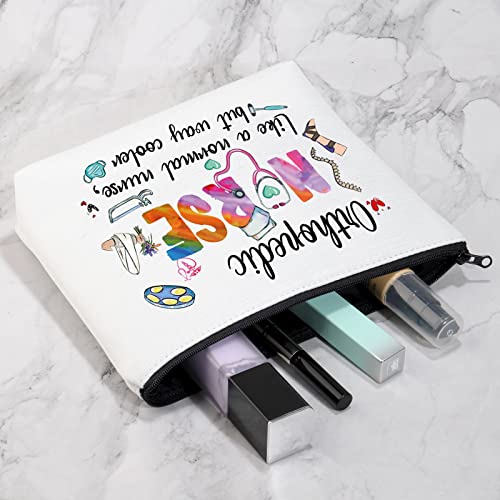 Orthopedic
NURSE
Like a normal nurse,
but way cooler